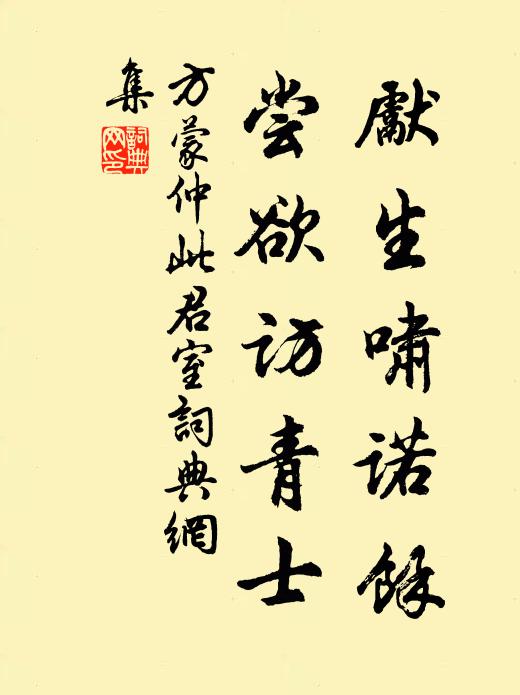 獻生嘯諾餘
尝欲访青士
方蒙仲此君室詞典網
集
詞典网印